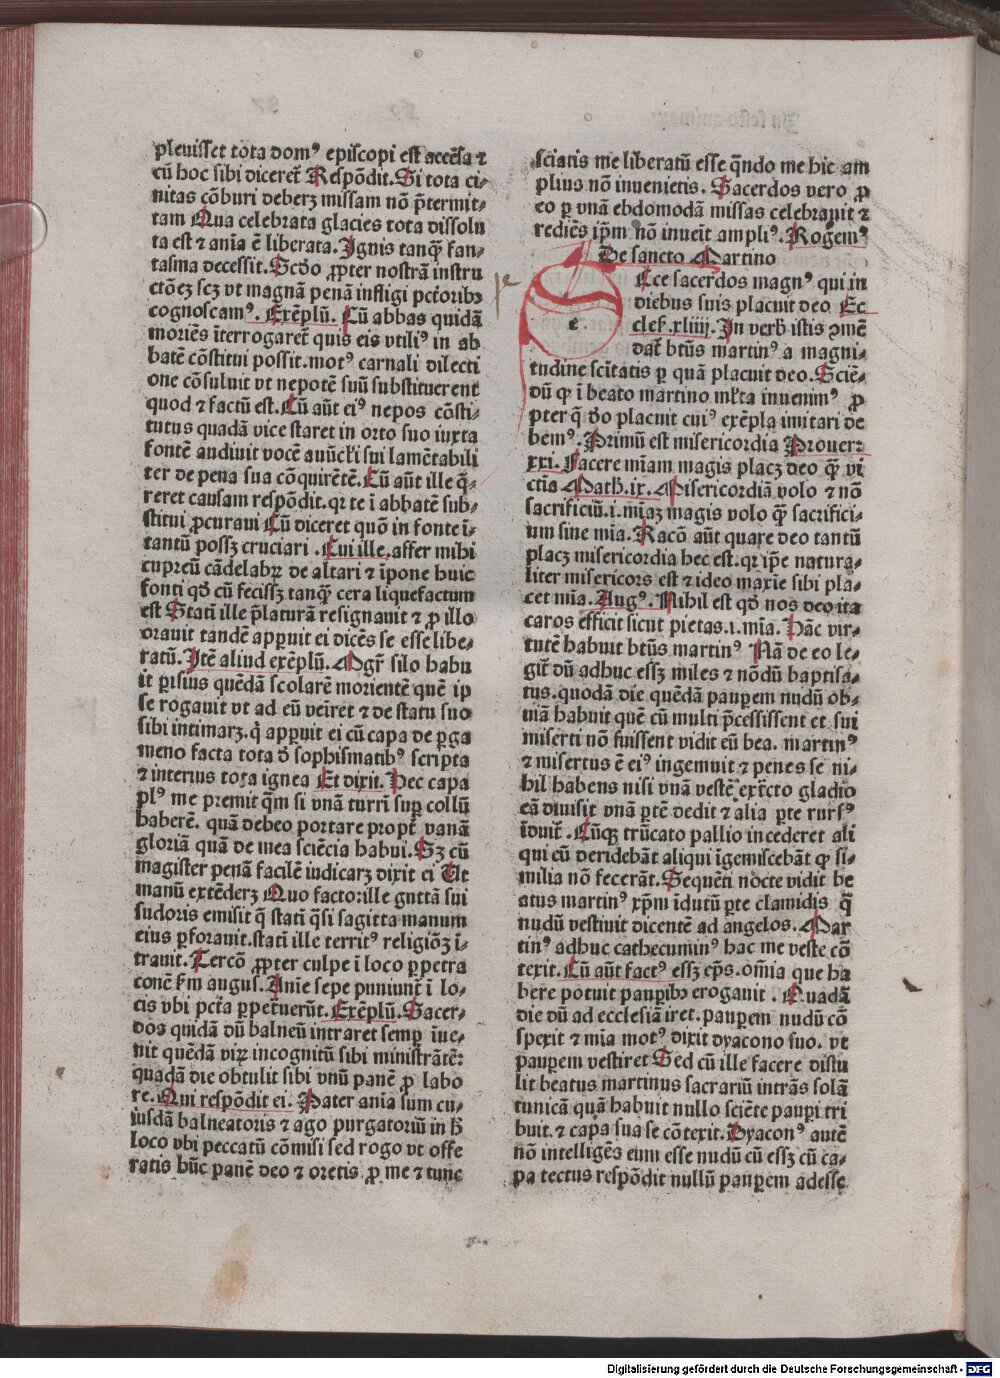 pleuisset tota domꝰ episcopi est accēsa ⁊
cū hoc sibi diceret̄ Respōdit. Si tota ci-
uitas cōburi deberꝫ missam nō p̄termit-
tam Qua celebrata glacies tota dissolu
ta est ⁊ aīa ē liberata. Ignis tanq̄ʒ fan-
tasma decessit. Scd̄o ꝓpter nostrā instru
ctōeꝫ scꝫ vt magnā penā infligi pctōribꝫ
cognoscamꝰ. Exēplū. Cū abbas quidā
moriēs īterrogaret̄ quis eis vtiliꝰ in ab
batē cōstitui possit. motꝰ carnali dilecti
one cōsuluit vt nepotē suū substituerent
quod ⁊ factū est. Cū aūt eiꝰ nepos cōsti-
tutus quadā vice staret in orto suo iuxta
fontē audiuit vocē auūcl̄i sui lamētabili
ter de pena sua cōquirētē. Cū aūt ille q̄-
reret causam respōdit. qꝛ te ī abbatē sub-
stitui ꝓcuraui Cū diceret quō in fonte ī-
tantū possꝫ cruciari. Cui ille. affer mihi
cupreū cādelabꝝ de altari ⁊ īpone huic
fonti qd̄ cū fecissꝫ tanq̄ʒ cera liquefactum
est Statī ille p̄laturā resignauit ⁊ ꝓ illo
orauit tandē apꝑuit ei dicēs se esse libe-
ratū. Itē aliud exēplū. Mgr̄ silo habu
it ꝑisius quēdā scolarē morientē quē ip
se rogauit vt ad eū veīret ⁊ de statu suo
sibi intimarꝫ. q̇ apꝑuit ei cū capa de ꝑga
meno facta tota d̄ sophismatibꝰ scripta
⁊ interius tota ignea Et dixit. Hec capa
plꝰ me premit q̄m si vnā turrī suꝑ collū
haberē. quā debeo portare propt̄ vanā
gloriā quā de mea sciēcia habui. Sꝫ cū
magister penā facilē iudicarꝫ dixit ei Ut
manū extēderꝫ Quo facto: ille guttā sui
sudoris emisit q̄ statī q̄si sagitta manum
eius ꝑforauit. statī ille territꝰ religiōꝫ ī-
trauit. Tercō ꝓpter culpe ī loco ꝑpetra
conē ẜm augus. Anīe sepe puniunt̄ ī lo-
cis vbi pctā ꝑpetuerūt. Exēplū. Sacer-
dos quidā dū balneū intraret semꝑ īue-
nit quēdā viꝝ incognitū sibi ministrātē:
quadā die obtulit sibi vnū panē ꝓ labo
re. Qui respōdit ei. Pater anīa sum cu-
iusdā balneatoris ⁊ ago purgatoriū in h̄
loco vbi peccatū cōmisi sed rogo vt offe
ratis hūc panē deo ⁊ oretis ꝓ me ⁊ tunc
sciatis me liberatū esse q̄ndo me hic am
plius nō inuenietis. Sacerdos vero ꝓ
eo ꝑ vnā ebdomodā missas celebrauit ⁊
rediēs ip̄m nō inueīt ampliꝰ. Rogemꝰ
De sancto Martino
e
Ecce sacerdos magnꝰ qui in
diebus suis placuit deo. Ec
clesi. xliiij. In verb̄ istis ꝯmē
dat̄ btūs martinꝰ a magni-
tudine scītatis ꝑ quā placuit deo. Sciē-
dū ꝙ ī beato martino ml̄ta inuenimꝰ ꝓ
pter q̄ d̄o placuit cuiꝰ exēpla imitari de
bemꝰ. Primū est misericordia Prouer:
xxi. Facere mīam magis placꝫ deo q̄ʒ vi
ctīa Math. ix. Misericordiā volo ⁊ nō
sacrificiū. i. mīaꝫ magis volo q̄ʒ sacrifici-
um sine mīa. Racō aūt quare deo tantū
placꝫ misericordia hec est. qꝛ ip̄e natura-
liter misericors est ⁊ ideo maxīe sibi pla-
cet mīa. Augꝰ. Nihil est qd̄ nos deo ita
caros efficit sicut pietas. i. mīa. Hāc vir-
tutē habuit btūs martinꝰ Nā de eo le-
git̄ dū adhuc essꝫ miles ⁊ nōdū baptisa-
tus. quodā die quēdā pauꝑem nudū ob-
uiā habuit quē cū multi p̄cessissent et sui
miserti nō fuissent vidit eū bea. martinꝰ
⁊ misertus ē eiꝰ ingemuit ⁊ penes se ni-
hil habens nisi vnā vestē extrcto gladio
eā diuisit vnā ꝑtē dedit ⁊ alia ꝑte rursꝰ
īduit̄. Cūqꝫ trūcato pallio incederet ali
qui eū deridebāt aliqui īgemiscebāt ꝙ si-
milia nō fecerāt. Sequēti nocte vidit be
atus martinꝰ xp̄m īdutū ꝑte clamidis q̄
nudū vestiuit dicentē ad angelos. Mar
tinꝰ adhuc cathecuminꝰ hac me veste cō
texit. Cū aūt factꝰ essꝫ ep̄s. om̄ia que ha
bere potuit pauꝑibꝫ erogauit. Quadā
die dū ad ecclesiā iret. pauꝑem nudū cō
spexit ⁊ mīa motꝰ dixit dyacono suo. vt
pauꝑem vestiret Sed cū ille facere distu
lit beatus martinus sacrariū intrās solā
tunicā quā habuit nullo sciēte pauꝑi tri
buit. ⁊ capa sua se cōtexit. Dyaconꝰ autē
nō intelligēs eum esse nudū cū essꝫ cū ca-
pa tectus respōdit nullū pauꝑem adesse
Digitalisierung gefördert durch die Deutsche Forschungsgemeinschaft - DFG